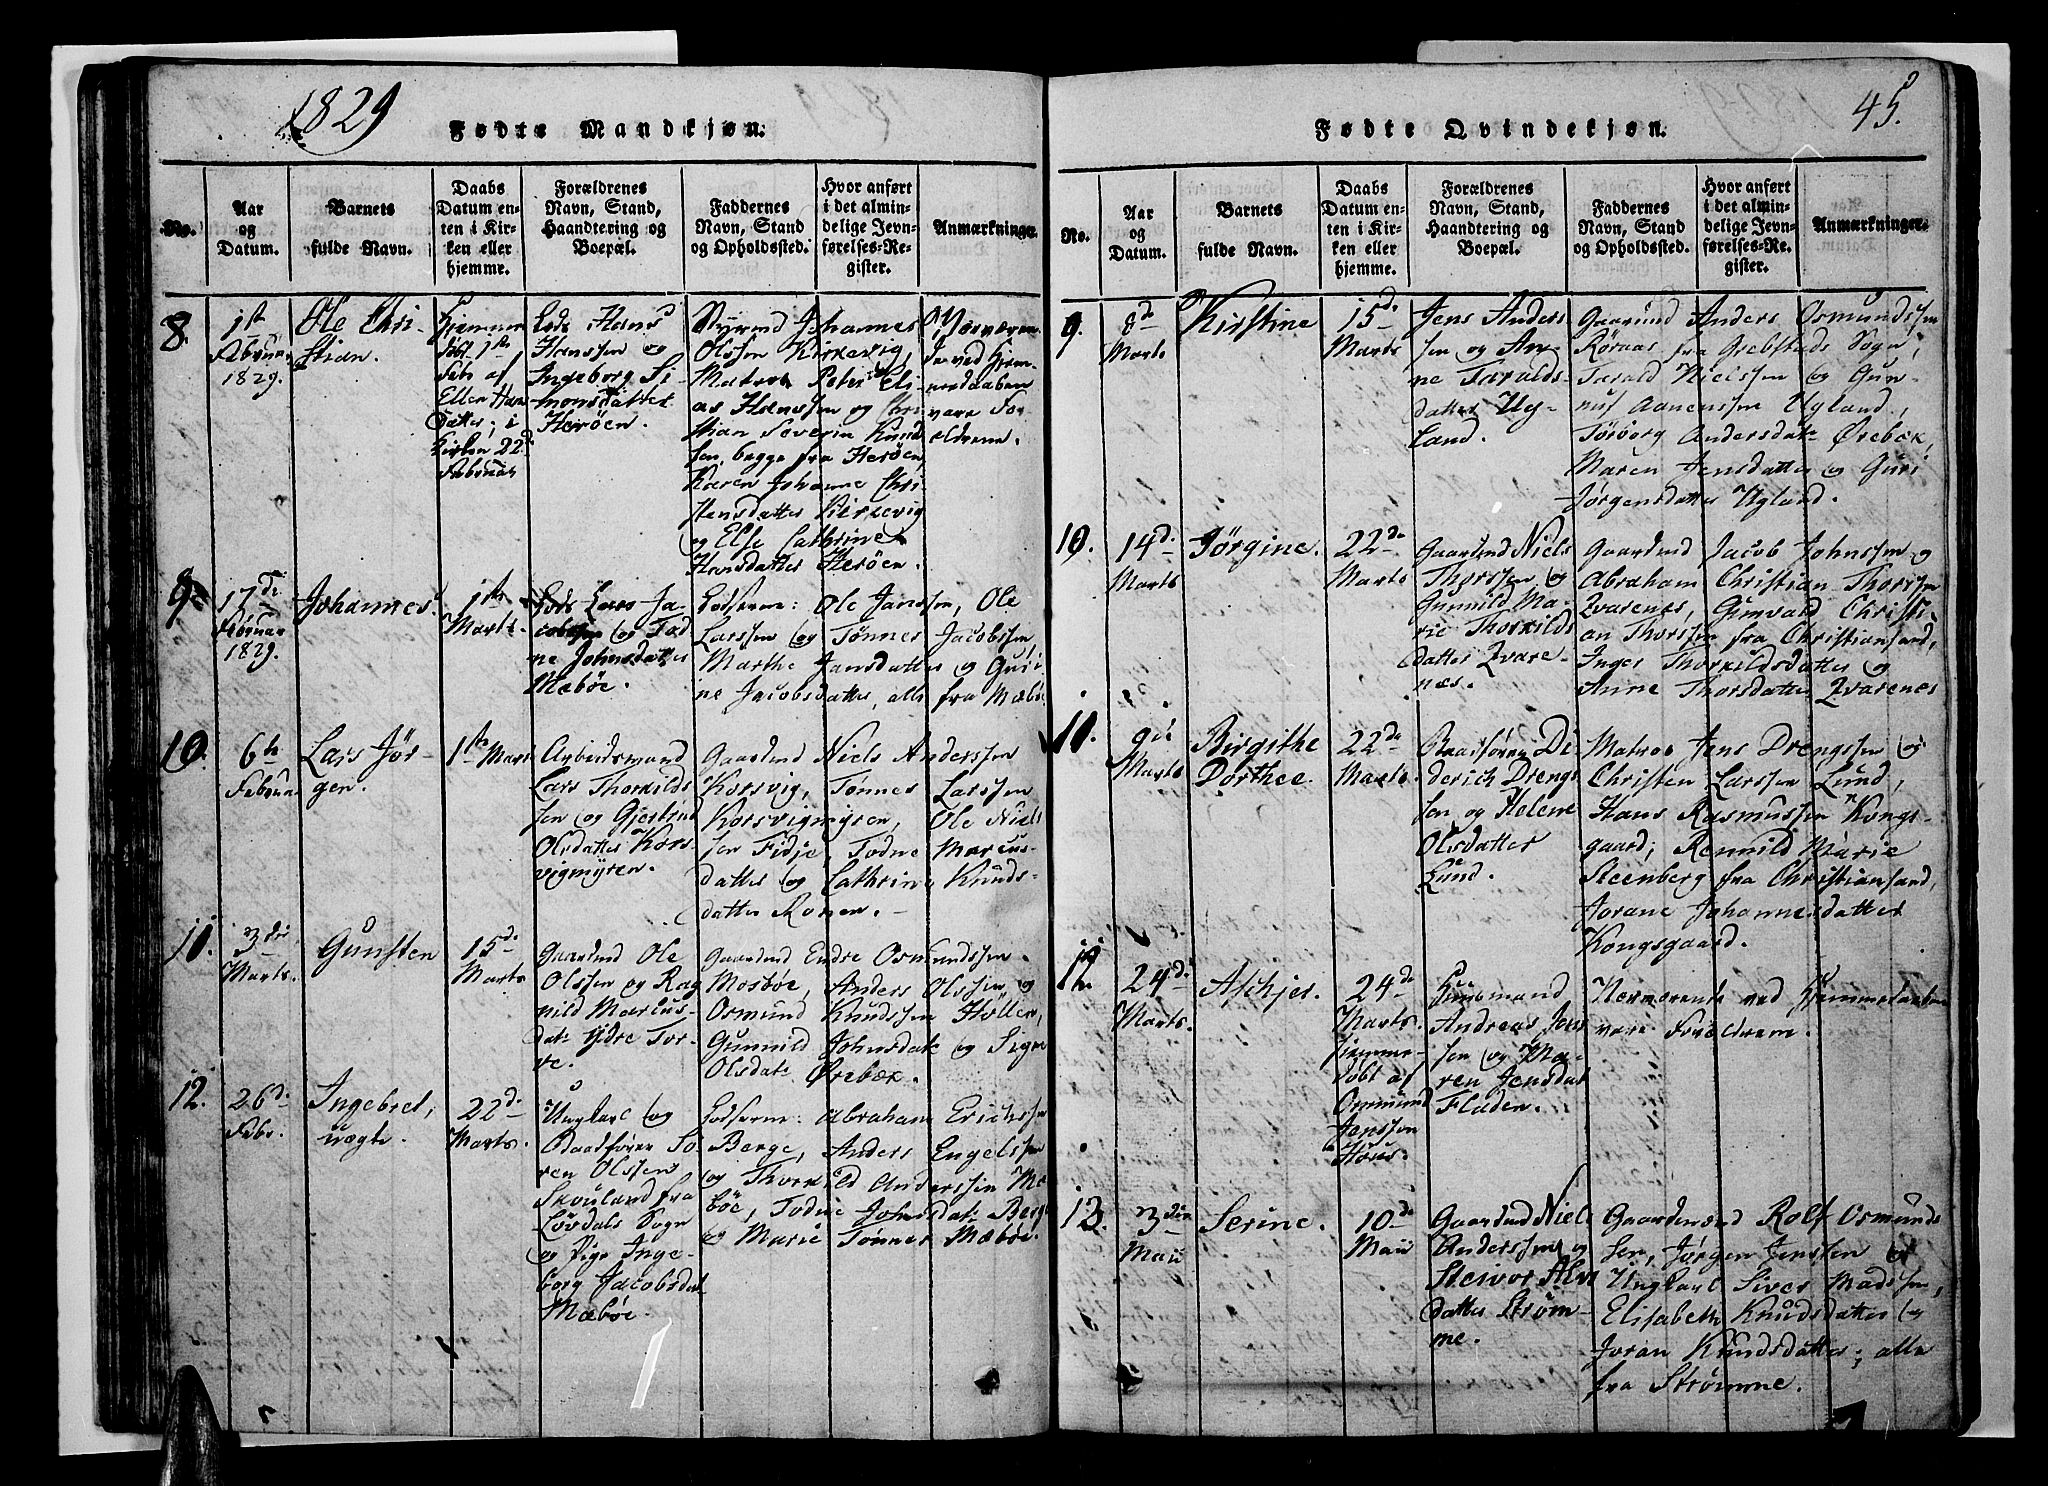 1829
Fødte Mandkjøn.
No.
Aar
og
Datum.
Barnets
fulde Navn.
Daabs
Datum en-
ten i Kir-
ken eller
hjemme.
Forældrenes
Navn, Stand,
Haandtering og
Boepæl.
Faddernes
Navn, Stand
og Opholdssted.
Hvor anført
i det almin-
delige Jevn-
førelses-Re-
gister.
Anmærkninger.
8.
1ste
Februar
1829.
Ole Chri-
stian.
Hjemme
døbt 1ste
Febr. af
Ellen Han
datter, i
Kirken 22d
Februar
Lods Hans
Hanssen og
Ingeborg Si-
monsdatter
Herøen.
Styrmd Johannes
Olssen Kirkevig,
Matros Peter Eli-
as Hanssen og Chri
stian Severin Knud
sen, begge fra Herøen,
Karen Johanne Chri-
stensdatter Kirkevig
og Else Cathrine
Hansdatter Herøen.
Nærværen-
de ved Hjem-
medaaben
vare For
ældrene.
9.
17de
Februar
1829.
Johannes.
1ste
Marts.
Lods Lars Ja-
cobssen og Tod
ne Johnsdatter
Mæbøe.
Lodserne: Ole Janssen, Ole
Larssen og Tønnes Jacobssen
Marthe Jansdatter og Guri
ne Jacobsdatter, alle fra Mæbø
10.
6te
Februar
Lars Jør-
gen.
1ste Marts
Arbeidsmand
Lars Thorkilds
sen og Gjertine
Olsdatter Kors
vigmyren.
Gaardmd Niels Anderssen
Korsvig, Tønnes Larssen
Korsvigmyren, Ole Niels
sen Fidje, Todne Marcus-
datter og Cathrine Knuds-
datter Ronen.
11.
3die
Marts.
Gunsten
15de
Marts
Gaardmd Ole
Olssen og Rag
nild Marcus-
dat: Ydre Tor-
ve.
Gaardmd Endre Osmundssen
Mosbøe, Anders Olssen og
Osmund Knudssen Høllen,
Gunnild Johnsdat: og Signe
Olsdat: Ørebæk.
12.
26de
Febr.
Ingebret,
uægte.
22de
Marts.
Ungkarl og
Baadfører Sø
ren Olssen
Skouland fra
Løvdals Sogn
og Pige Inge-
borg Jacobsdat
Mæbøe.
Lodserne: Abraham Erichssen
Berge, Anders Engelssen
og Thorkild Anderssen Mæ
bøe, Todne Johnsdat: Berge
og Marie Tønnes Mæbøe.
45.
Fødte Qvindekjøn.
No.
Aar
og
Datum.
Barnets
fulde Navn.
Daabs
Datum en-
ten i Kir-
ken eller
hjemme.
Forældrenes
Navn, Stand,
Haandtering og
Boepæl.
Faddernes
Navn, Stand
og Opholdssted.
Hvor anført
i det almin-
delige Jevn-
førelses-Re-
gister.
Anmærkninger.
9.
8de
Marts
Kirstine
15de
Marts
Jens Anders
sen og An-
ne Taralds-
datter Ug-
land.
Gaarmd Anders Osmundssen
Røraas fra Grebstads Sogn,
Tarald Nielssen og Gun-
nuf Aanenssen Ugland,
Torborg Andersdat: Ørebæk,
Maren Jensdatter og Guri
Jørgensdatter Ugland.
10.
14de
Marts
Jørgine.
22de
Marts
Gaardmd Niels
Thorssen og
Gunnild Ma-
rie Thorkilds
datter Qvare
næs.
Gaardmd Jacob Johnssen og
Abraham Christian Thorssen
Qvarenes, Gunvald Christi-
an Thorssen fra Christiansand,
Inger Thorkildsdatter og
Anne Thorsdatter Qvarenes
11.
9de
Marts
Birgithe
Dorthee.
22de
Marts.
Baadfører Di
derich Drengs
sen og Helene
Olsdatter
Lund.
Matros Jens Drengssen og
Christen Larssen Lund,
Hans Rasmussen Kongs-
gaard; Rennild Marie
Steenberg fra Christiansand,
Jorane Johannesdatter
Kongsgaard.
12.
24de
Marts.
Aschjer.
24de
Marts.
hjemme-
døbt af
Osmund
Jenssen
Høus.
Huusmand
Andreas Jens
sen og Ma-
ren Jensdat
Fladen.
Nærværende ved Hjemmedaaben
vare Forældrene.
13.
3die
Maii
Serine.
10de
Maii
Gaardmd Niels
Anderssen og
Steivor Alvs
datter Strøm-
me.
Gaardmænd Rolf Osmunds
sen, Jørgen Jenssen og
Ungkarl Siver Madssen,
Elisabeth Knudsdatter og
Joran Knudsdatter, alle
fra Strømme.